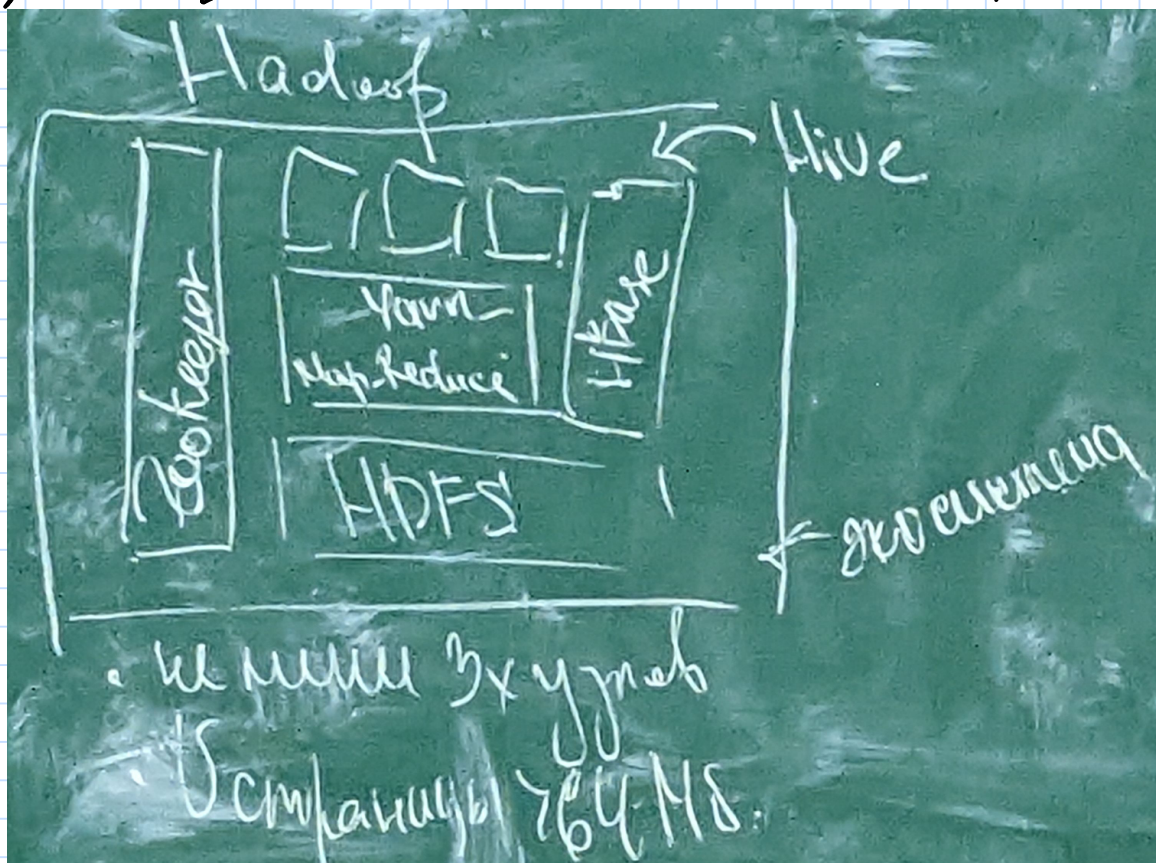 Hadoop
Hive
Zookeeper
Yarn
Map-Reduce
HBase
HDFS
экосистема
· не менее 3х узлов
· V страницы >64 Мб.